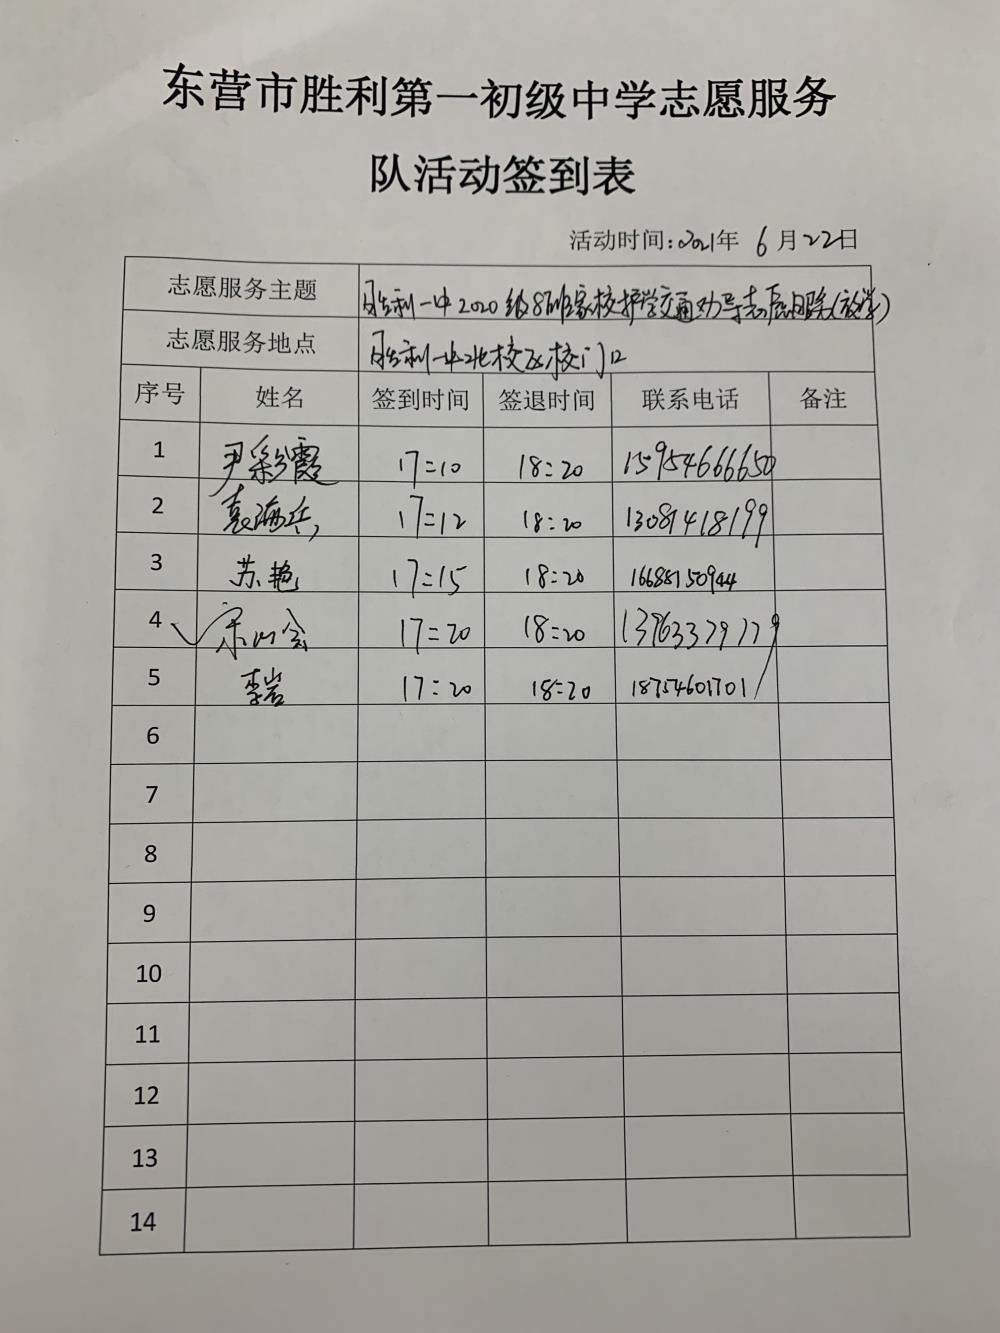 东营市胜利第一初级中学志愿服务
队活动签到表
活动时间:2021年 6月22日
志愿服务主题 胜利一中2020级8班家校护学交通劝导志愿服务(放学)
志愿服务地点 胜利一中北校区校门口
序号 姓名 签到时间 签退时间 联系电话 备注
1 尹彩霞 17:10 18:20 15954666650
2 袁海兵 17:12 18:20 13081418199
3 苏艳 17:15 18:20 16688150944
4 17:20 18:20 13963379179
5 李岩 17:20 18:20 18754601701
6
7
8
9
10
11
12
13
14